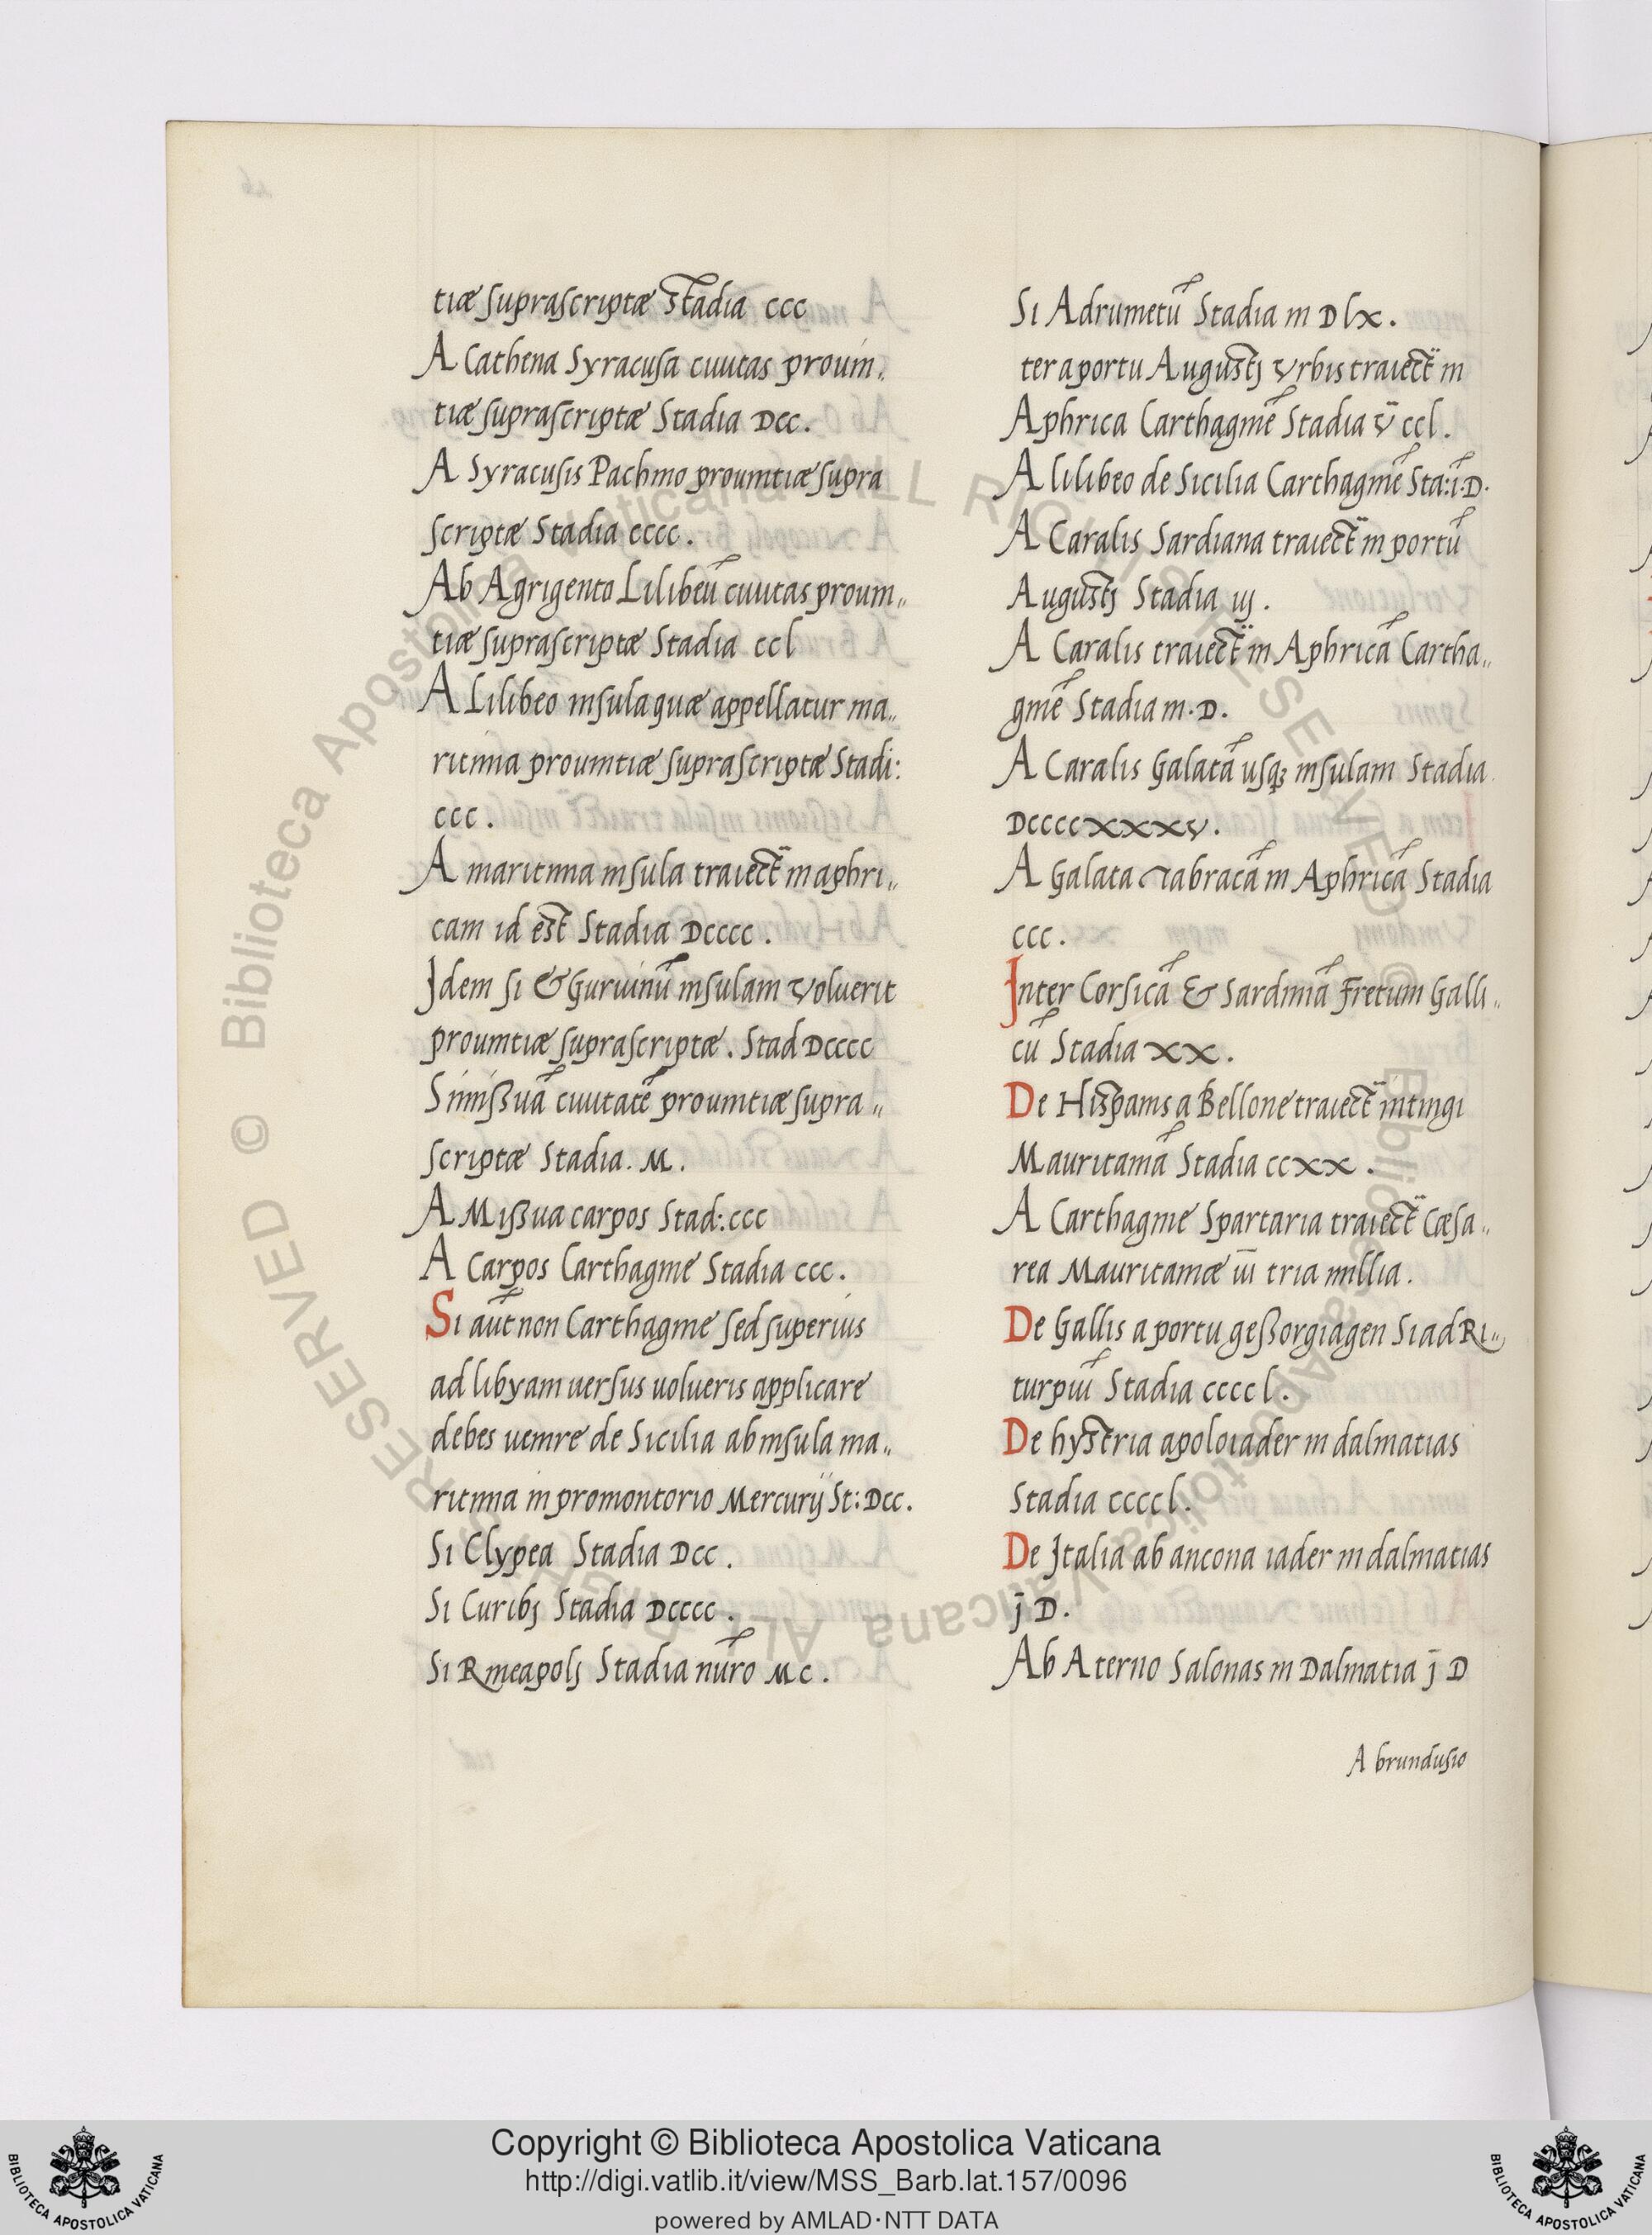 tiæ suprascriptæ Stadia ccc
A Cathena Syracusa ciuitas prouin„
tiæ suprascriptæ Stadia Dcc.
A Syracusis Pachino prouintiæ supra
scriptæ Stadia cccc.
Ab Agrigento Lilibeū ciuitas prouin„
tiæ suprascriptæ Stadia ccl
A Lilibeo insula quæ appellatur ma„
ritima prouintiæ suprascriptæ Stadi:
ccc.
A maritima insula traiect̄ in aphri„
cam id est Stadia Dcccc.
Idem si & Guruinū insulam voluerit
prouintiæ suprascriptæ. Stad Dcccc
Si missuā ciuitatē prouintiæ supra„
scriptæ Stadia. M.
A Missua carpos Stad: ccc
A Carpos Carthagine Stadia ccc.
Si aut̄ non Carthagine sed superius
ad libyam uersus uolueris applicare
debes uenire de Sicilia ab insula ma„
ritima in promontorio Mercurij St: Dcc.
Si Clypea Stadia Dcc.
Si Curibj Stadia Dcccc.
Si Rineapolj Stadia nūro Mc.
Si Adrumetū Stadia m Dlx.
ter a portu Augustj vrbis traiect̄ in
Aphrica Carthaginē Stadia v̄ ccl.
A lilibeo de Sicilia Carthaginē Sta: ī. D.
A Caralis Sardiana traiect̄ in portū
Augustj Stadia iij.
A Caralis traiect̄ in Aphricā Cartha„
ginē Stadia m. D.
A Caralis Galatā usq; insulam Stadia
Dccccxxxv.
A Galata Tabracā in Aphricā Stadia
ccc.
Inter Corsicā & Sardiniā Fretum Galli„
cū Stadia xx.
De Hispanis a Bellone traiect̄ in tingi
Mauritaniā Stadia ccxx.
A Carthagine Spartaria traiect̄ Cæsa„
rea Mauritaniæ iīi tria millia.
De Gallis a portu gessorgiagen Siad Ri„
turpiū Stadia ccccl.
De hystria apoloiader in dalmatias
Stadia ccccl.
De Italia ab ancona iader in dalmatias
j̄ D.
Ab Aterno Salonas in Dalmatia j̄ D
A brundusio
© Biblioteca Apostolica Vaticana ALL RIGHTS RESERVED © Biblioteca Apostolica Vaticana ALL RIGHTS RESERVED
Copyright © Biblioteca Apostolica Vaticana
http://digi.vatlib.it/view/MSS_Barb.lat.157/0096
powered by AMLAD·NTT DATA
BIBLIOTECA APOSTOLICA VATICANA
BIBLIOTECA APOSTOLICA VATICANA